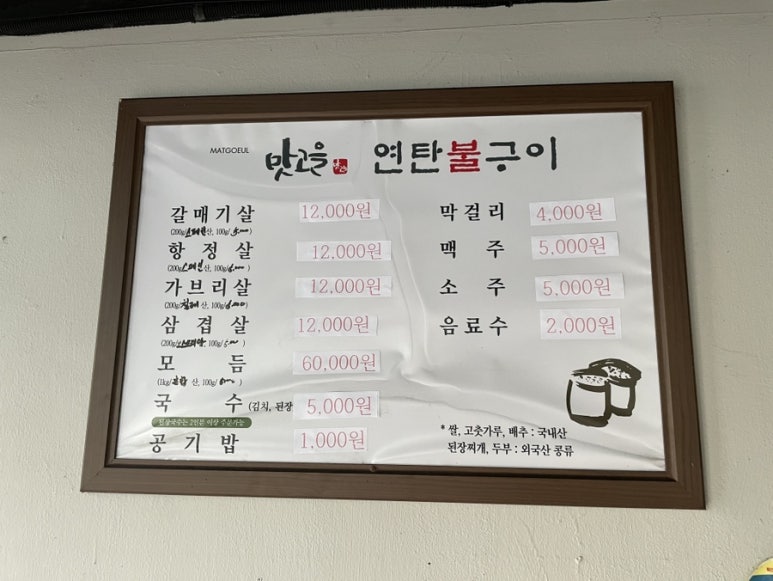 MATGOEUL 맛고을 연탄불구이
갈매기살 12,000원
(200g/스페인산, 100g/
항정살 12,000원
(200g/스페인산, 100g/6,000)
가브리살 12,000원
(200g/칠레산, 100g/6,000)
삼겹살 12,000원
(200g/ 산, 100g/
모듬 60,000원
(1kg/혼합산, 100g/6,000)
국수 (김치, 된장 5,000원
2인분 이상 주문가능
공기밥 1,000원
막걸리 4,000원
맥주 5,000원
소주 5,000원
음료수 2,000원
* 쌀, 고춧가루, 배추 : 국내산
된장찌개, 두부 : 외국산 콩류